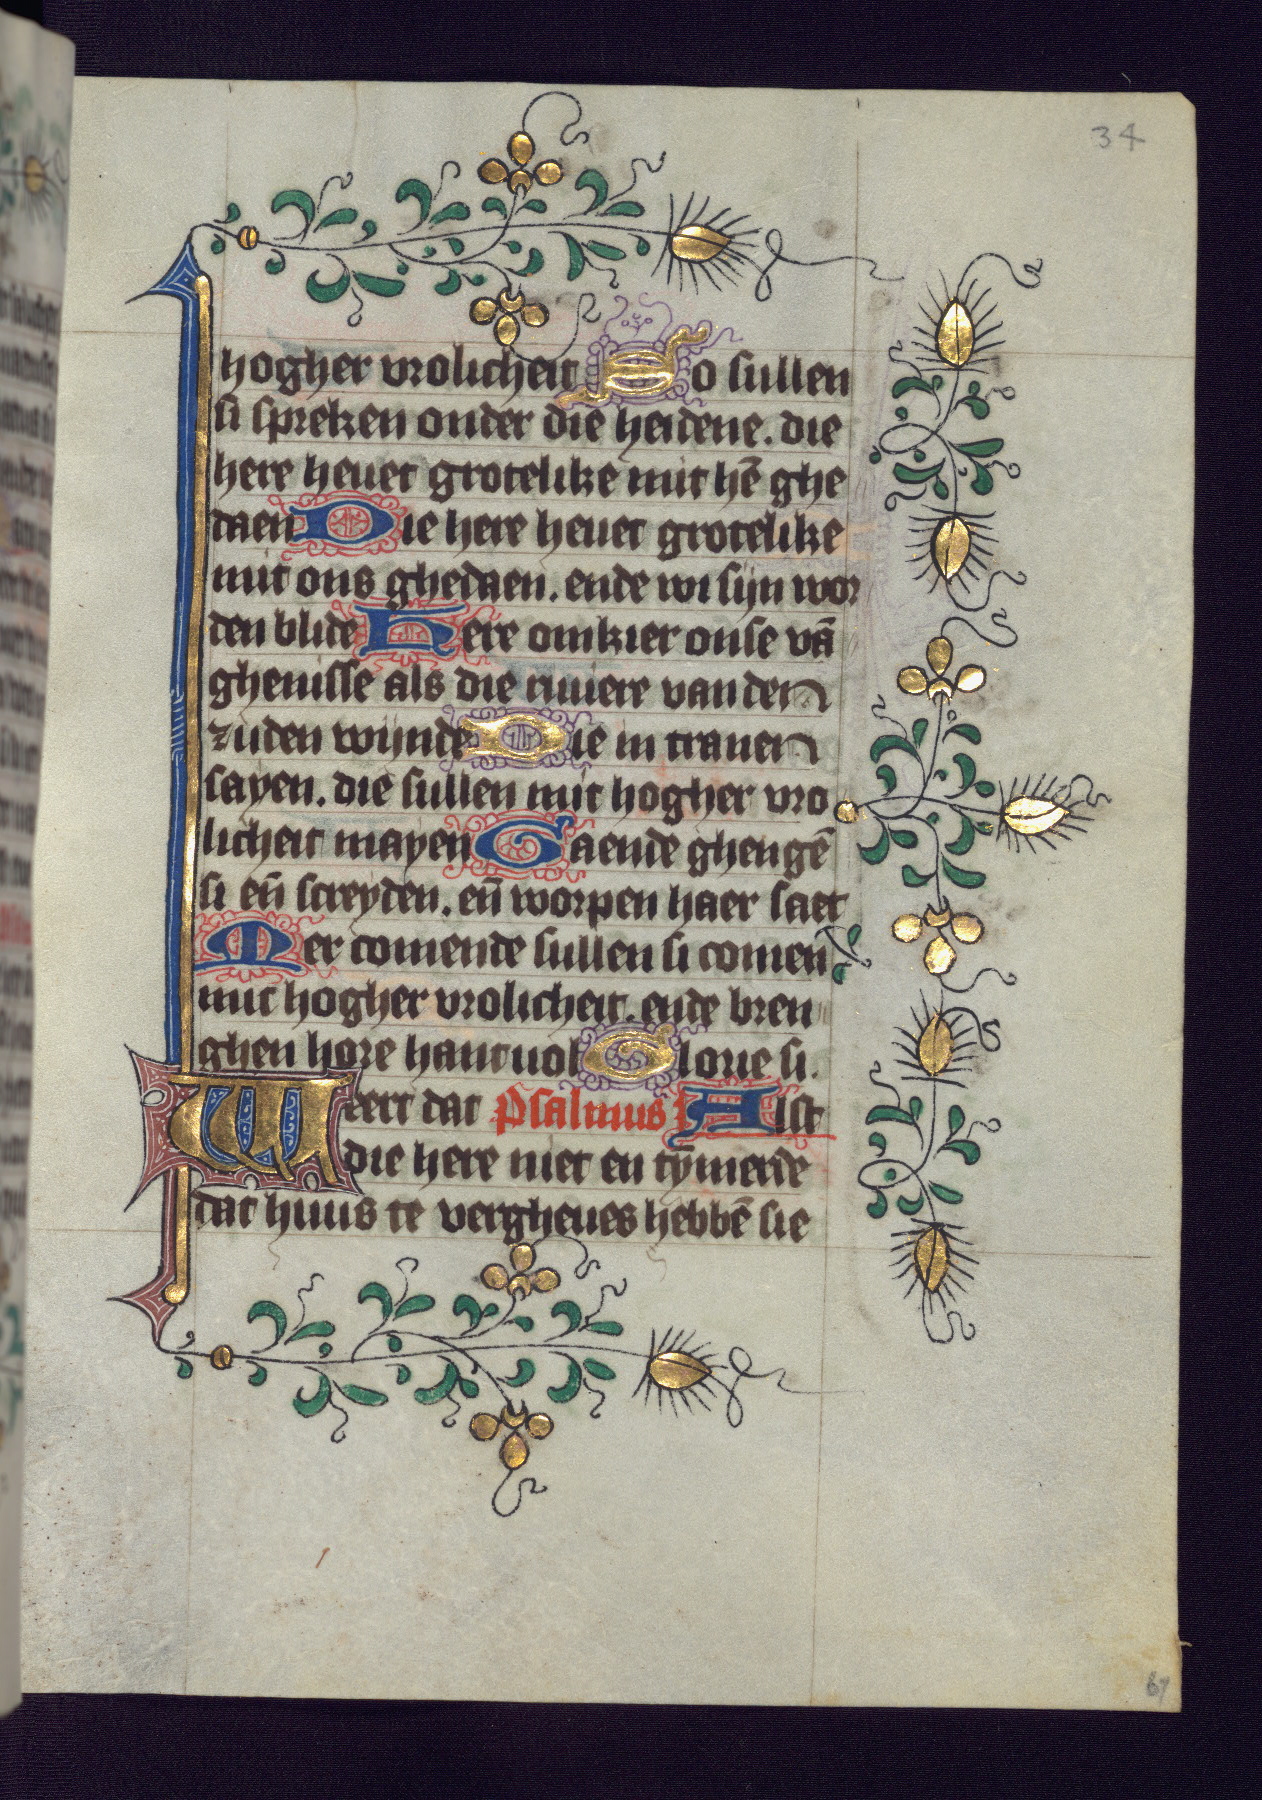 34
hogher vrolicheit So sullen
si spreken onder die heidene. die
here heuet grotelike mit hē ghe
daen Die here heuet grotelike
mit ons ghedaen. ende wi sijn wor
den blide Here omkier onse vā
ghenisse als die riuiere van den
zuden wijnde Die in tranen
sayen. die sullen mit hogher vro
licheit mayen Gaende ghengē
si eñ screyden. eñ worpen haer saet
Mer comende sullen si comen
mit hogher vrolicheit. ende bren
ghen hore hant uol Glorie si.
Weert dat Psalmus Alst
die here niet en tȳmerde
dat huus te vergheues hebbē sie
67